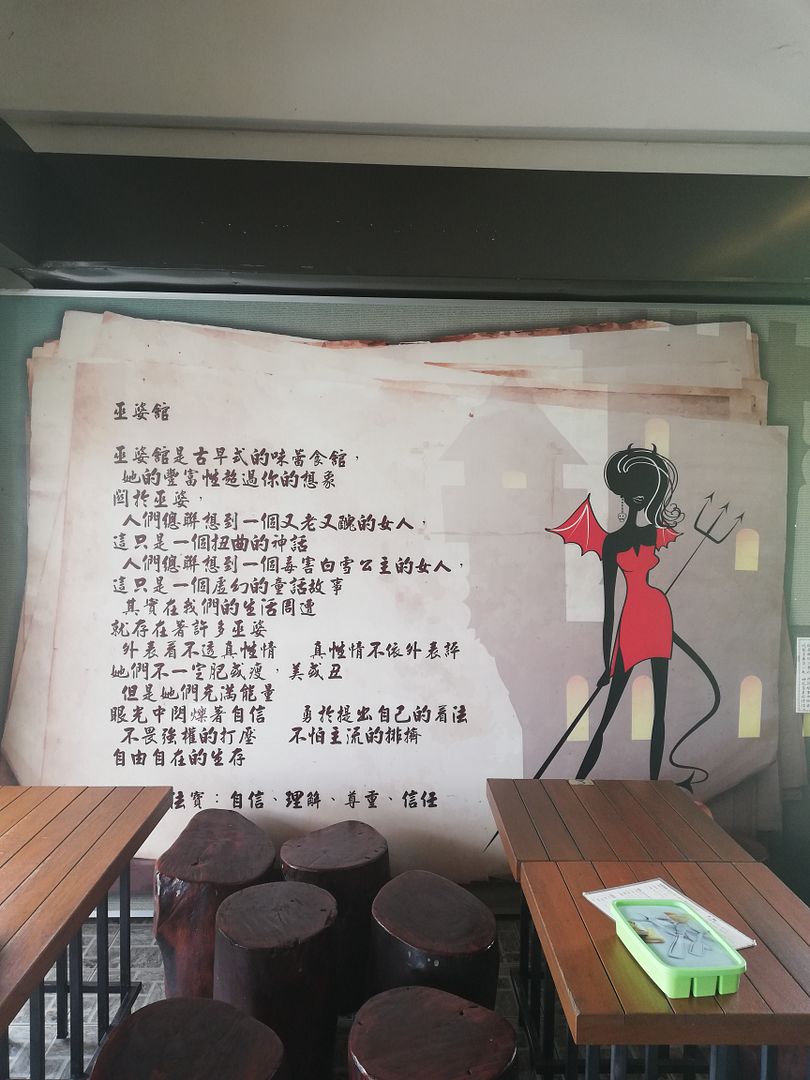 巫婆館
巫婆館是古早式的味蕾食館，
她的豐富性超過你的想象
關於巫婆，
人們總聯想到一個又老又醜的女人，
這只是一個扭曲的神話
人們總聯想到一個毒害白雪公主的女人，
這只是一個虛幻的童話故事
其實在我們的生活周遭
就存在著許多巫婆
外表看不透真性情　真性情不依外表評
她們不一定肥或瘦，美或丑
但是她們充滿能量
眼光中閃爍著自信　勇於提出自己的看法
不畏強權的打壓　不怕主流的排擠
自由自在的生存
法寶：自信、理解、尊重、信任